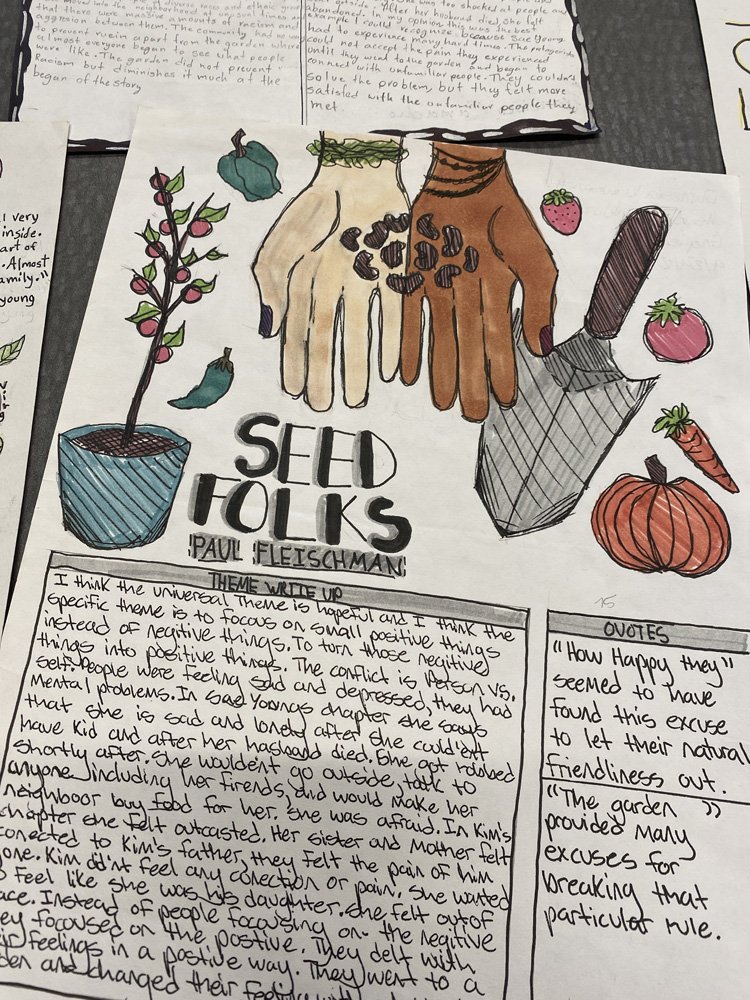 moved into the neighbor
were massive amounts of racism and
aggression between them. The community had no way
to prevent ruein apart from the garden where
almost everyone began to see what people
were like. The garden did not prevent
Racism but diminishes it much at the
began of the story
abandoned. In my opinion this was the best
example I could recognize because Sae Young
had to experience many hard times. The
could not accept the pain they experienced
until they went to the garden and began to
connect with unfamiliar people. They couldn't
solve the problem, but they felt more
satisfied with the unfamiliar people they
met
very
inside.
art of
. Almost
family."
young
SEED
FOLKS
PAUL FLEISCHMAN
THEME WRITE UP
I think the universal Theme is hopeful and I think the
specific theme is to focus on small positive things
instead of negitive things. To turn those negitive
things into positive things. The conflict is Person vs.
self. People were feeling sad and depressed, they had
Mental problems. In Sae Youngs chapter she says
that she is sad and lonely after she could'ent
have kid and after her hasbund died. She got robbed
shortly after. She would'ent go outside, talk to
anyone including her firends, and would make her
neighboor buy food for her. She was afraid. In Kim's
chapter she felt outcasted. Her sister and Mother felt
conected to Kim's father, they felt the pain of him
gone. Kim did'nt feel any conection or pain. She wanted
feel like she was his daughter. She felt out of
ace. Instead of people focusing on the negitive
ey focoused on the postive. They delt with
ir feelings in a postive way. They went to a
den and changed their
15
QUOTES
"How Happy they"
seemed to have
found this excuse
to let their natural
friendliness out.
"The garden "
provided many
excuses for
breaking that
particular rule.